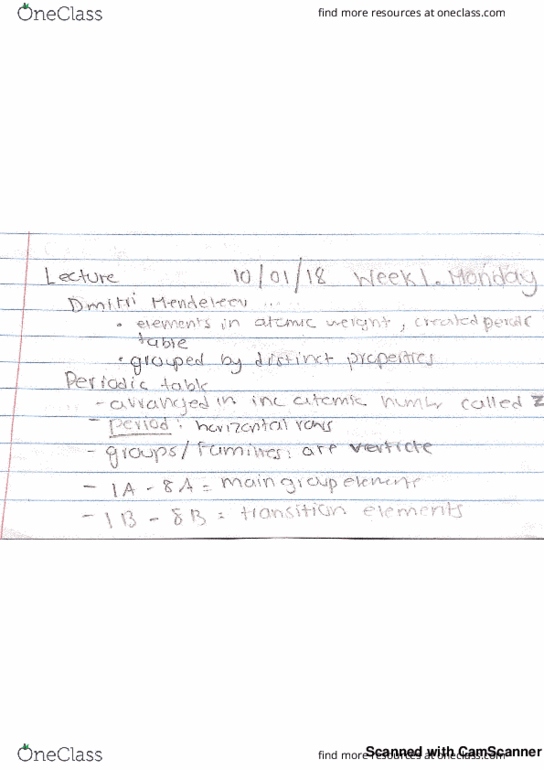 OneClass
find more resources at oneclass.com
Lecture 10/01/18 Week 1. Monday
Dmitri Mendeleev ....
• elements in atomic weight, created
table
• grouped by distinct properties
Periodic table
- arranged in inc atomic called Z
- period: horizontal rows
- groups/families: are verticle
- 1A - 8A = main group element
- 1B - 8B = transition elements
OneClass
find more resources at oneclass.com
Scanned with CamScanner